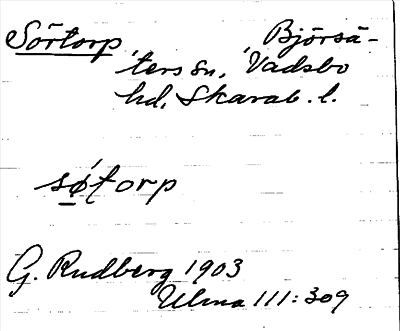 Sörtorp Björsä-
ters sn, Vadsbo
hd, Skarab. l.
søt́orp
G. Rudberg 1903
Ulma 111:309